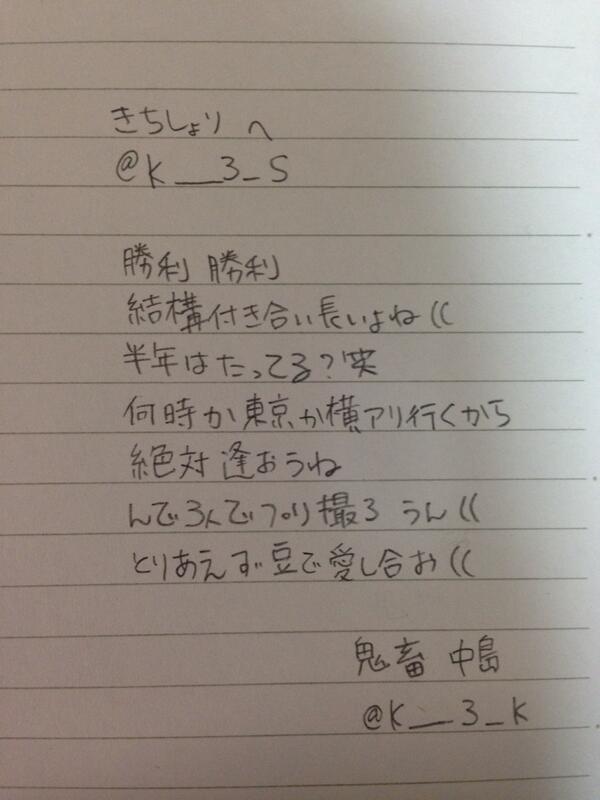 きちしょり へ
@K__3_S
勝利 勝利
結構付き合い長いよね((
半年はたってる?笑
何時か東京か横アリ行くから
絶対 逢おうね
んで3人でプリ撮ろ うん((
とりあえず豆で愛し合お((
鬼畜 中島
@K__3_K